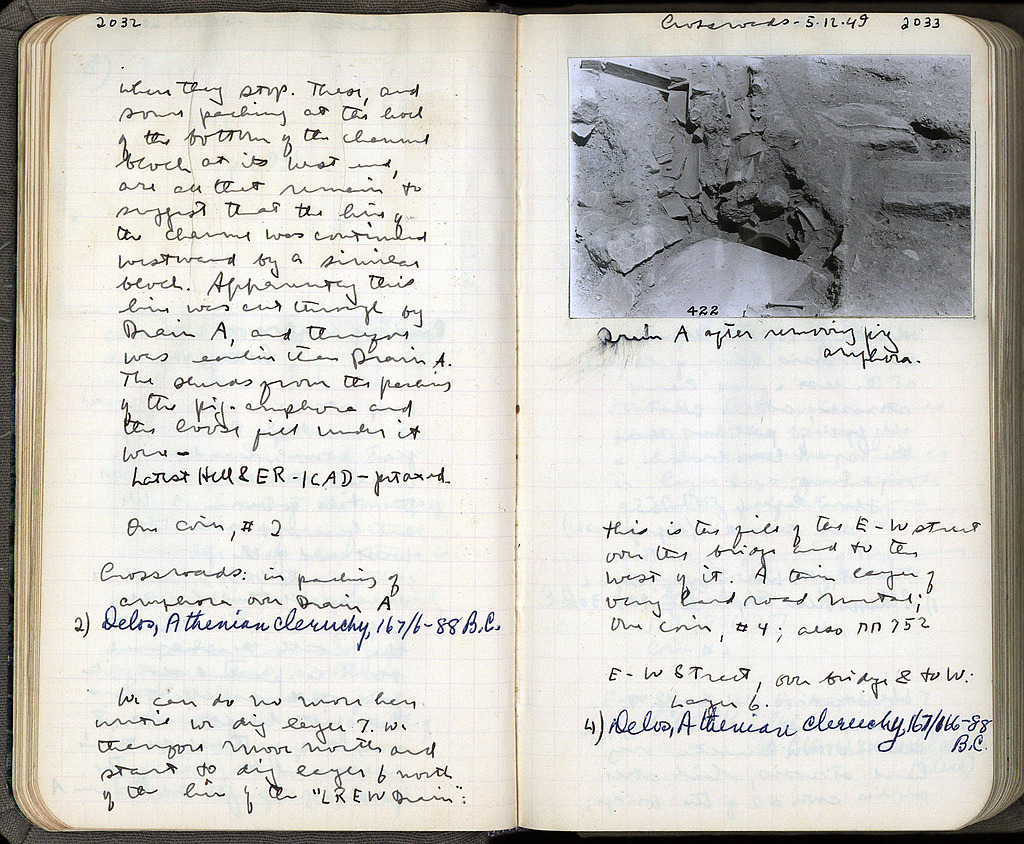 2032
when they stop. These, and
some packing at the level
of the bottom of the channel
block at its west end,
are all that remain to
suggest that the line of
the channel was continued
westward by a similar
block. Apparently this
line was cut through by
Drain A, and therefore
was earlier than Drain A.
The sherds from the packing
of the pig. amphora and
the loose fill under it
were -
Latest Hell & ER - 1CAD -
One coin, # 2
Crossroads: in packing of
amphora over Drain A
2) Delos, Athenian cleruchy, 167/6-88 B.C.
We can do no more here
until we dig layer 7. We
therefore move north and
start to dig layer 6 north
of the line of the "LREW Drain":
Crossroads - 5.12.49 2033
422
Drain A after removing pig
amphora.
this is the fill of the E-W street
over the bridge and to the
west of it. A thin layer of
very hard road metal;
One coin, #4; also ΠΠ 752
E-W Street, over bridge & to W.
Layer 6.
4) Delos, Athenian cleruchy, 167/166-88
B.C.